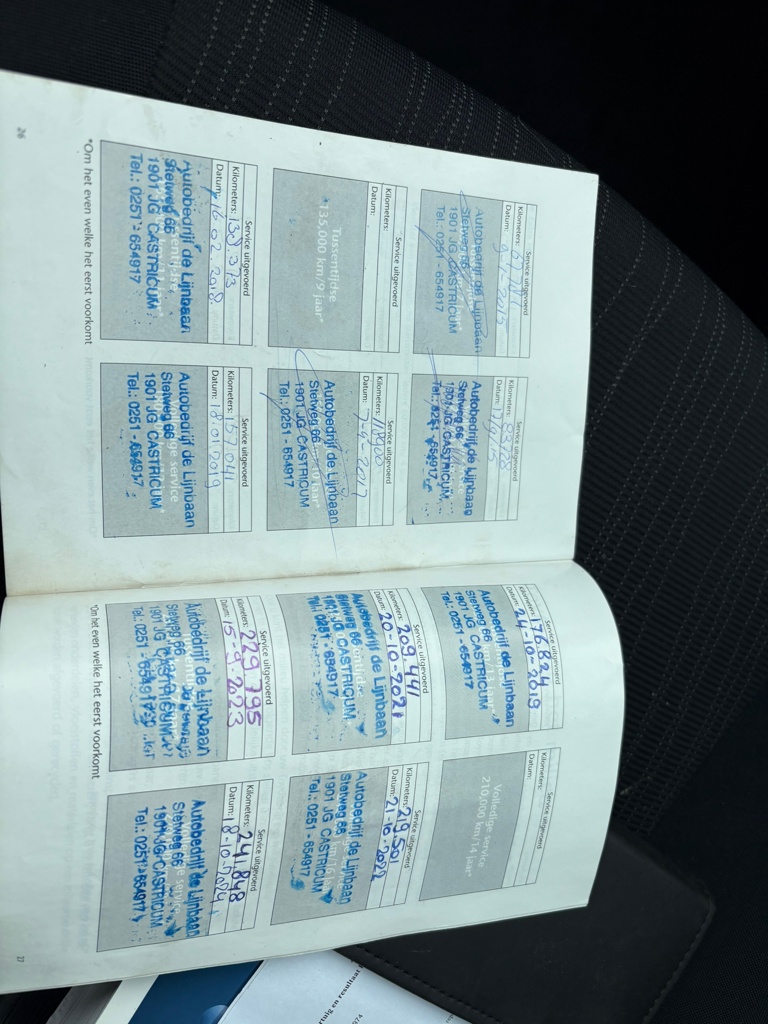 Service uitgevoerd
Kilometers:
Datum: 9-7-2015
Autobedrijf de Lijnbaan
Stetweg 66
1901 JG CASTRICUM
Tel.: 0251 - 654917
Service uitgevoerd
Kilometers:
Datum:
Autobedrijf de Lijnbaan
Stetweg 66
1901 JG CASTRICUM
Tel.: 0251 - 654917
Service uitgevoerd
Kilometers:
Datum:
Tussentijdse
*135.000 km/9 jaar*
Service uitgevoerd
Kilometers: 118900
Datum: 7-4-2017
Autobedrijf de Lijnbaan
Stetweg 66
1901 JG CASTRICUM
Tel.: 0251 - 654917
Service uitgevoerd
Kilometers: 138 373
Datum: 16.02.2018
Autobedrijf de Lijnbaan
Stetweg 66
1901 JG CASTRICUM
Tel.: 0251 - 654917
Service uitgevoerd
Kilometers: 157.041
Datum: 18.01.2019
Autobedrijf de Lijnbaan
Stetweg 66
1901 JG CASTRICUM
Tel.: 0251 - 654917
*Om het even welke het eerst voorkomt
26
Service uitgevoerd
Kilometers: 176.824
Datum: 24-10-2019
Autobedrijf de Lijnbaan
Stetweg 66
1901 JG CASTRICUM
Tel.: 0251 - 654917
Service uitgevoerd
Kilometers:
Datum:
Volledige service
210.000 km/14 jaar*
Service uitgevoerd
Kilometers: 209.441
Datum: 20-10-2021
Autobedrijf de Lijnbaan
Stetweg 66
1901 JG CASTRICUM
Tel.: 0251 - 654917
Service uitgevoerd
Kilometers: 219.501
Datum: 21-10-2022
Autobedrijf de Lijnbaan
Stetweg 66
1901 JG CASTRICUM
Tel.: 0251 - 654917
Service uitgevoerd
Kilometers: 229.795
Datum: 15-9-2023
Autobedrijf de Lijnbaan
Stetweg 66
1901 JG CASTRICUM
Tel.: 0251 - 654917
Service uitgevoerd
Kilometers: 241.848
Datum: 18-10-2024
Autobedrijf de Lijnbaan
Stetweg 66
1901 JG CASTRICUM
Tel.: 0251 - 654917
*Om het even welke het eerst voorkomt
27
en resultaat